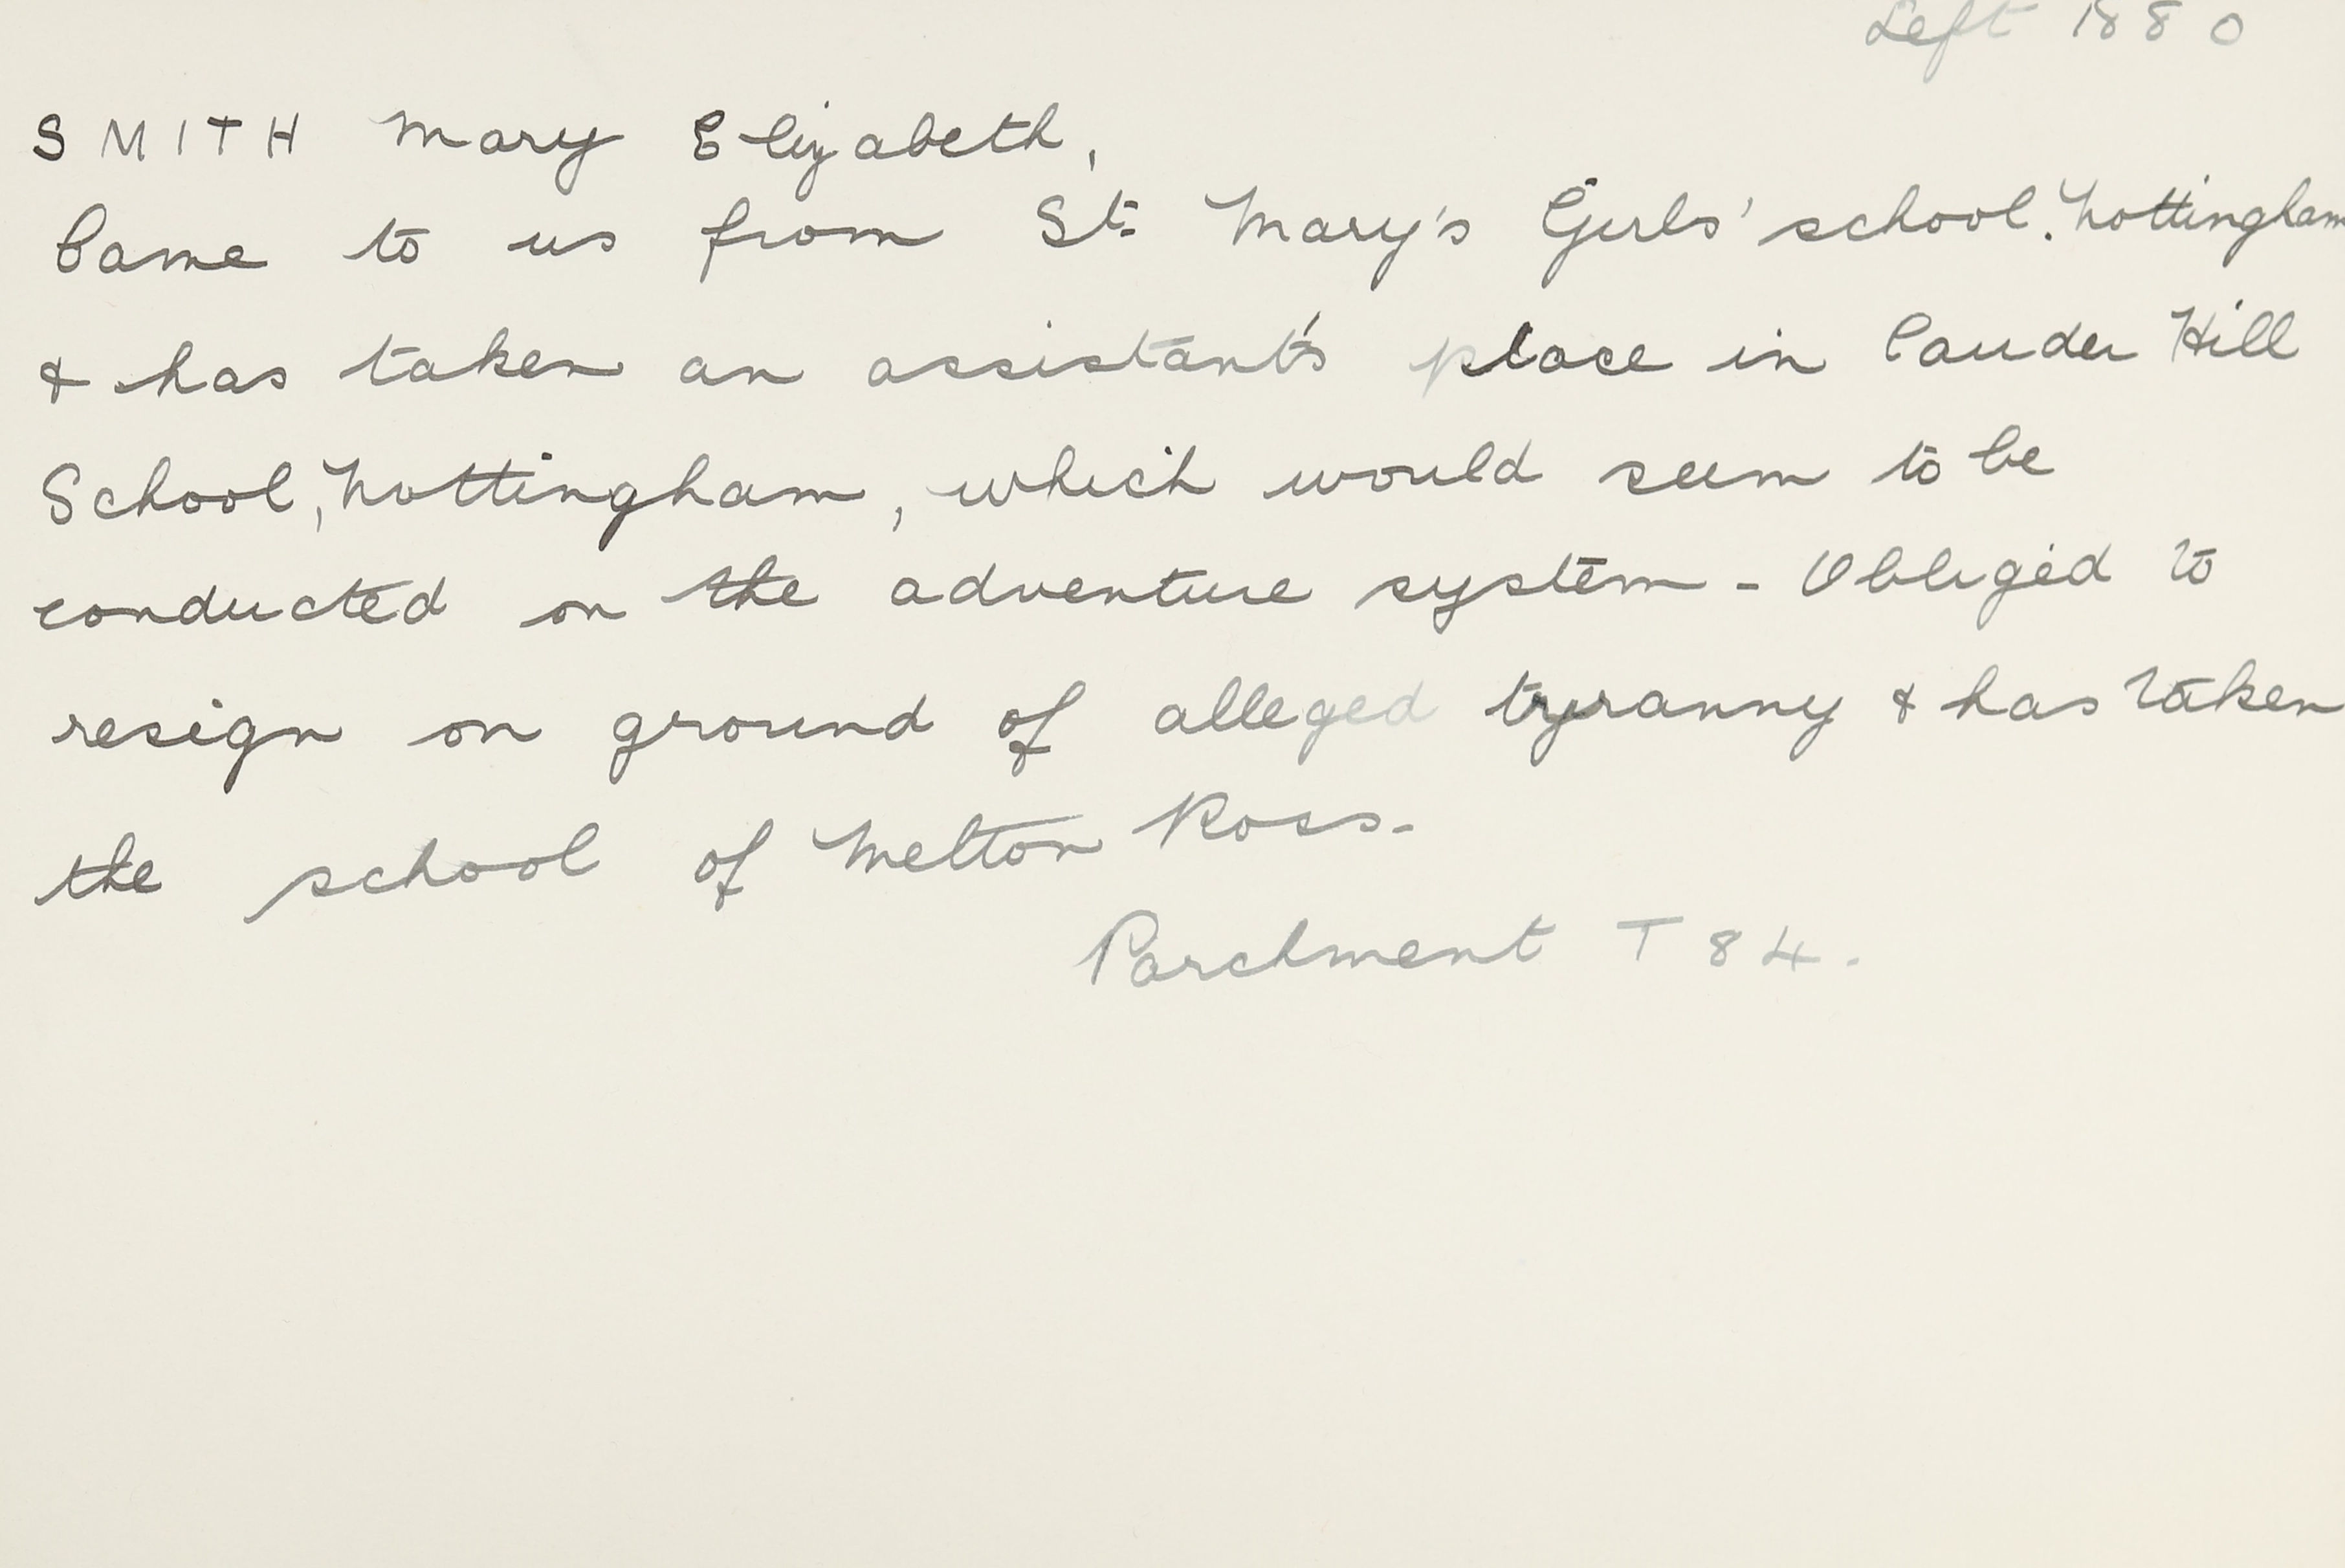 Left 1880
SMITH Mary Elizabeth,
Came to us from St. Mary's Girls' school. Nottingham
& has taken an assistant's place in Cauder Hill
School, Nottingham, which would seem to be
conducted on the adventure system - Obliged to
resign on ground of alleged tyranny & has taken
the school of Melton Ross.
Parchment T 84.